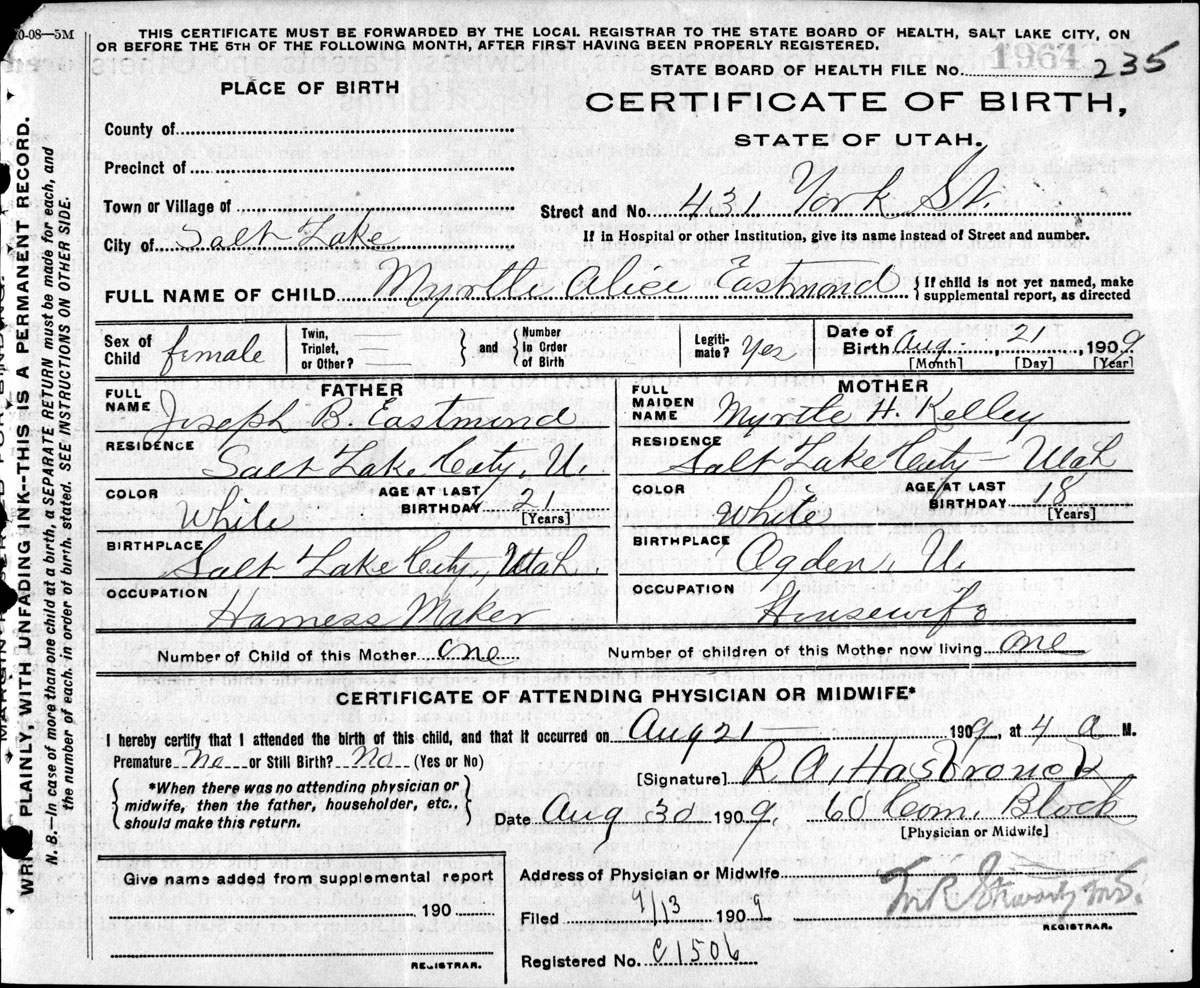 10-08—5M
THIS CERTIFICATE MUST BE FORWARDED BY THE LOCAL REGISTRAR TO THE STATE BOARD OF HEALTH, SALT LAKE CITY, ON
OR BEFORE THE 5TH OF THE FOLLOWING MONTH, AFTER FIRST HAVING BEEN PROPERLY REGISTERED.
STATE BOARD OF HEALTH FILE No. 1964 235
PLACE OF BIRTH
CERTIFICATE OF BIRTH,
STATE OF UTAH.
County of
Precinct of
Town or Village of
City of Salt Lake
Street and No. 431 York St.
If in Hospital or other Institution, give its name instead of Street and number.
FULL NAME OF CHILD Myrtle Alice Eastmond { If child is not yet named, make
supplemental report, as directed
Sex of Child female
Twin, Triplet, or Other? } and { Number In Order of Birth
Legiti-mate? Yes
Date of Birth Aug. 21, 1909
[Month] [Day] [Year]
FATHER
FULL NAME Joseph B. Eastmond
RESIDENCE Salt Lake City, U.
COLOR White AGE AT LAST BIRTHDAY 21 [Years]
BIRTHPLACE Salt Lake City, Utah
OCCUPATION Harness Maker
MOTHER
FULL MAIDEN NAME Myrtle H. Kelley
RESIDENCE Salt Lake City — Utah
COLOR White AGE AT LAST BIRTHDAY 18 [Years]
BIRTHPLACE Ogden, U.
OCCUPATION Housewife
Number of Child of this Mother one Number of children of this Mother now living one
CERTIFICATE OF ATTENDING PHYSICIAN OR MIDWIFE*
I hereby certify that I attended the birth of this child, and that it occurred on Aug 21 1909, at 4 a M.
Premature No or Still Birth? No (Yes or No)
{ *When there was no attending physician or
midwife, then the father, householder, etc.,
should make this return. }
[Signature] R. A. Hasbrouck
Date Aug 30 1909. 60 Com. Block
[Physician or Midwife]
Give name added from supplemental report
190
REGISTRAR.
Address of Physician or Midwife
Filed 9/13 1909
REGISTRAR.
Registered No. C1506
WRITE PLAINLY, WITH UNFADING INK--THIS IS A PERMANENT RECORD.
N. B.—In case of more than one child at a birth, a SEPARATE RETURN must be made for each, and
the number of each, in order of birth, stated. SEE INSTRUCTIONS ON OTHER SIDE.